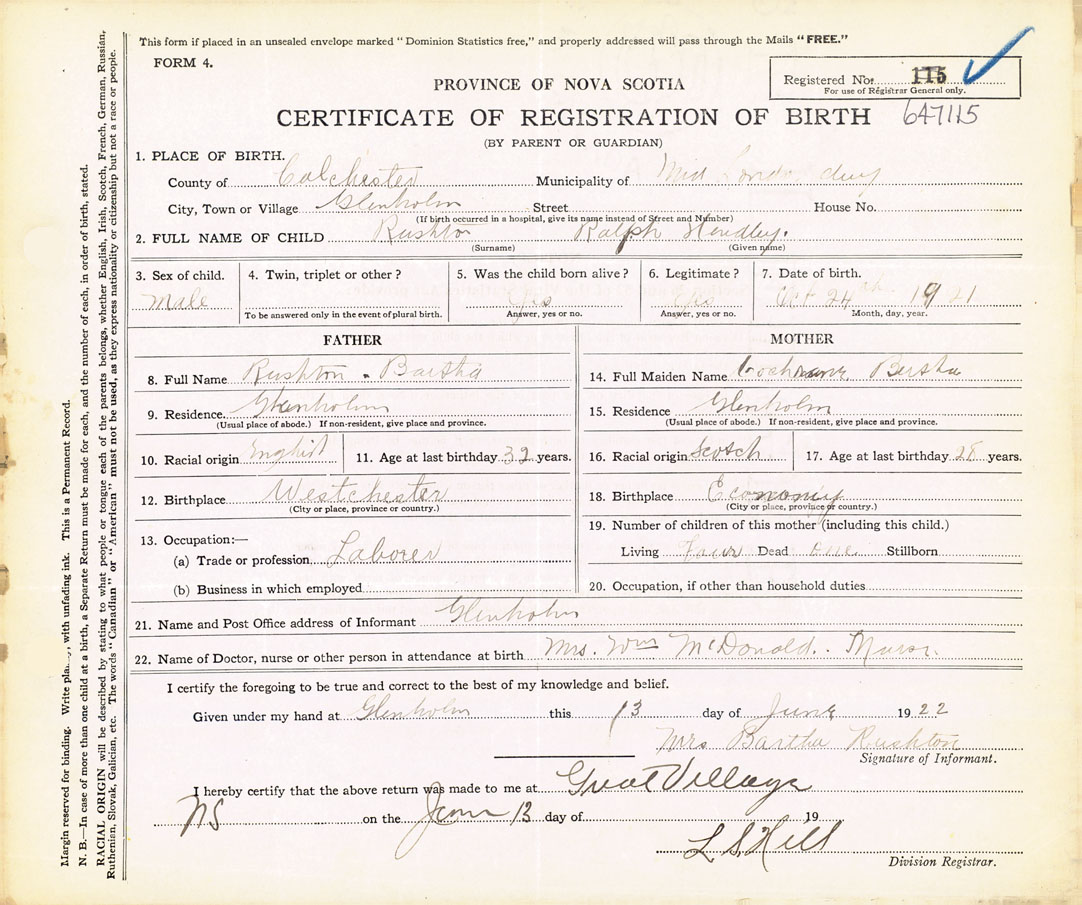 This form if placed in an unsealed envelope marked "Dominion Statistics free," and properly addressed will pass through the Mails "FREE."
FORM 4.
Registered No. 115
For use of Registrar General only.
PROVINCE OF NOVA SCOTIA
CERTIFICATE OF REGISTRATION OF BIRTH 647115
(BY PARENT OR GUARDIAN)
1. PLACE OF BIRTH.
County of Colchester Municipality of Mid
City, Town or Village Glenholm Street House No.
(If birth occurred in a hospital, give its name instead of Street and Number)
2. FULL NAME OF CHILD Rushton Ralph Hendley.
(Surname) (Given name)
3. Sex of child. 4. Twin, triplet or other? 5. Was the child born alive? 6. Legitimate? 7. Date of birth.
Male Yes Yes Oct 24th 1921
To be answered only in the event of plural birth. Answer, yes or no. Answer, yes or no. Month, day, year.
FATHER
8. Full Name Rushton . Bartha
9. Residence. Glenholm
(Usual place of abode.) If non-resident, give place and province.
10. Racial origin English 11. Age at last birthday 32 years.
12. Birthplace Westchester
(City or place, province or country.)
13. Occupation:—
(a) Trade or profession Laborer
(b) Business in which employed
MOTHER
14. Full Maiden Name Bertha
15. Residence Glenholm
(Usual place of abode.) If non-resident, give place and province.
16. Racial origin Scotch 17. Age at last birthday 28 years.
18. Birthplace Economy
(City or place, province or country.)
19. Number of children of this mother (including this child.)
Living Four Dead one Stillborn
20. Occupation, if other than household duties
21. Name and Post Office address of Informant Glenholm
22. Name of Doctor, nurse or other person in attendance at birth Mrs. Wm McDonald.
I certify the foregoing to be true and correct to the best of my knowledge and belief.
Given under my hand at Glenholm this 13 day of June 1922
Mrs Bartha Rushton
Signature of Informant.
I hereby certify that the above return was made to me at Great Village
NS on the June 13 day of 19
L S Hill
Division Registrar.
Margin reserved for binding. Write with unfading ink. This is a Permanent Record.
N. B.—In case of more than one child at a birth, a Separate Return must be made for each, and the number of each, in order of birth, stated.
RACIAL ORIGIN will be described by stating to what people or tongue each of the parents belongs, whether English, Irish, Scotch, French, German, Russian,
Ruthenian, Slovak, Galician, etc. The words "Canadian" or "American" must not be used, as they express nationality or citizenship but not a race or people.